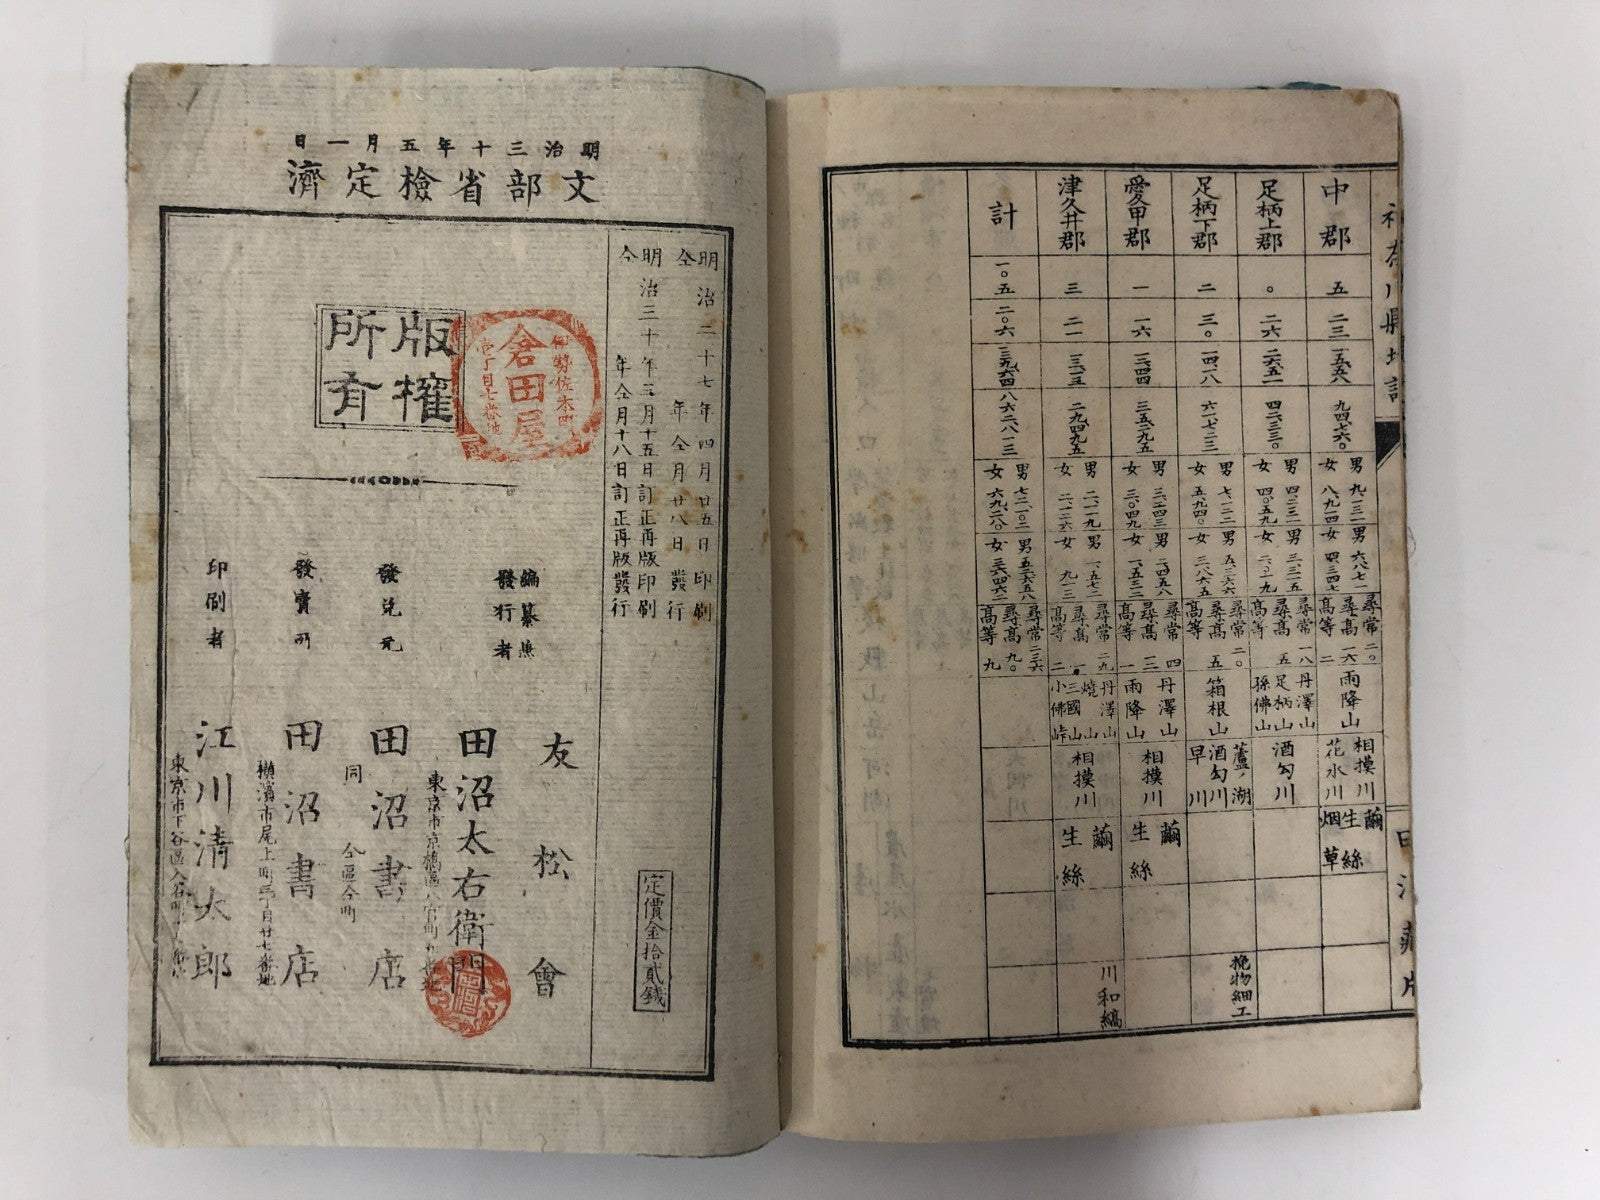 神奈川縣地誌
中郡
五
二三
一五、五八
九四、七六〇
男 九、三一
女 八、九一四
男 六、八七一
女 四、三四七
尋常 二〇
尋高 一六
高等 二
雨降山
相摸川
花水川
繭
生絲
烟草
足柄上郡
〇
二六
二六、五一
四二、三三〇
男 四、三三一
女 四、〇五九
男 三、三一五
女 二、〇一九
尋常 一八
尋高 五
高等
丹澤山
足柄山
孫佛山
酒匂川
足柄下郡
二
三〇
一四、二八
六一、七二三
男 七、一三二
女 五、九四〇
男 五、三六六
女 二、八六五
尋常 二〇
尋高 五
高等
箱根山
蘆ノ湖
酒匂川
早川
挽物細工
愛甲郡
一
一六
一三、四四
三五、二九五
男 三、二四三
女 三、〇四九
男 二、四五八
女 一、五三二
尋常 四
尋高 一三
高等 一
丹澤山
雨降山
相摸川
繭
生絲
津久井郡
三
二一
三三、一三
二九、四九五
男 二、二一九
女 二、一二六
男 一、五七二
女 九一三
尋常 二九
尋高 一
高等 二
丹澤山
燒山
三國山
小佛峠
相摸川
繭
生絲
川和縞
計
一〇五
二〇六
一三九、六四
八六二、八一三
男 七二、一〇二
女 六九、二八〇
男 五三、六五八
女 三六、四六二
尋常 二三六
尋高 九〇
高等 九
田沼藏版
明治三十年五月一日
文部省檢定濟
明治二十七年四月廿五日印刷
仝年仝月廿八日發行
明治三十年三月十五日訂正再版印刷
仝年仝月十八日訂正再版發行
定價金拾貳錢
版權所有
伊勢佐木町
倉田屋
壱丁目七番地
編纂兼
發行者
友松會
田沼太右衛門
東京市京橋區八官町
發兌元
田沼書店
同 仝區仝町
發賣所
田沼書店
橫濱市尾上町三丁目廿七番地
印刷者
江川清太郎
東京市下谷區入谷町